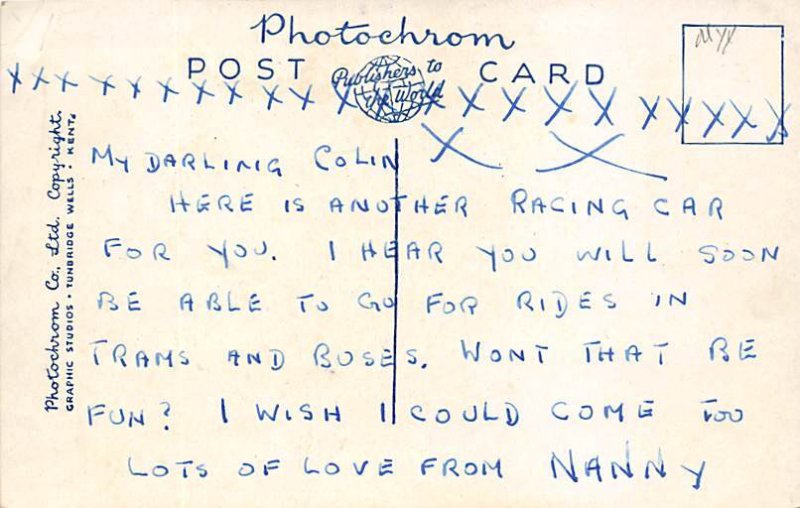 Photochrom
POST CARD
Publishers to
the World
x x x x x x x x x x x x x x x x x x x x x
MY DARLING COLIN X X
HERE IS ANOTHER RACING CAR
FOR YOU. I HEAR YOU WILL SOON
BE ABLE TO GO FOR RIDES IN
TRAMS AND BUSES. WONT THAT BE
FUN? I WISH I COULD COME TOO
LOTS OF LOVE FROM NANNY
Photochrom Co., Ltd. Copyright.
GRAPHIC STUDIOS • TUNBRIDGE WELLS • KENT.